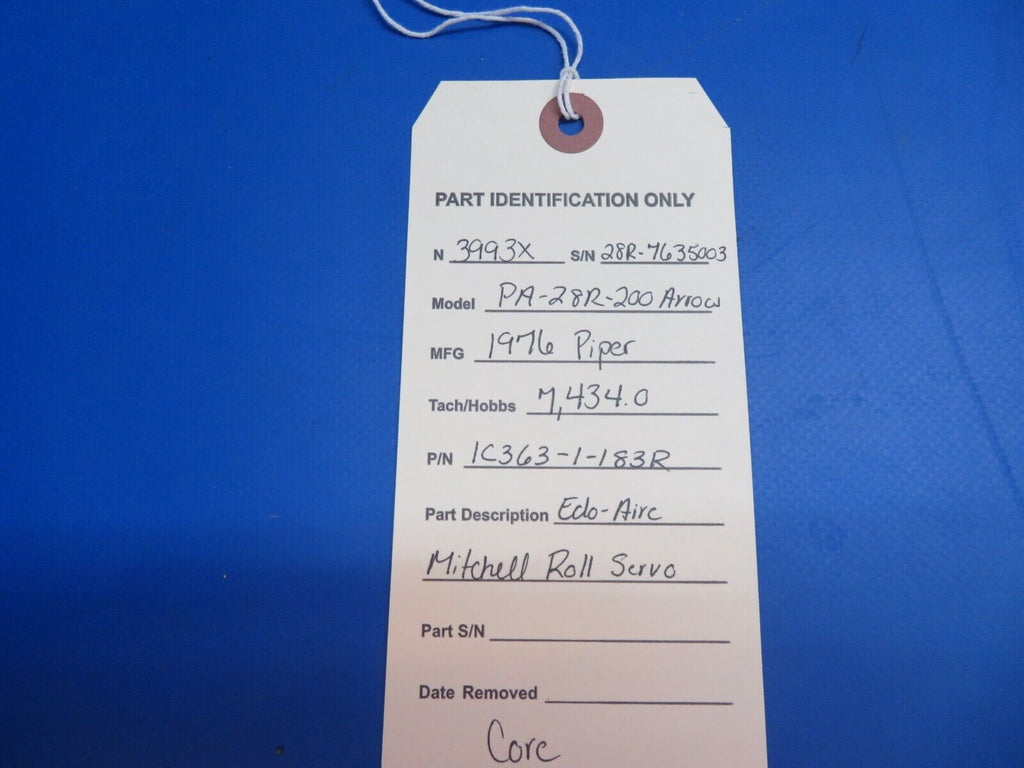 PART IDENTIFICATION ONLY
N 3993X S/N 28R-7635003
Model PA-28R-200 Arrow
MFG 1976 Piper
Tach/Hobbs 7,434.0
P/N 1C363-1-183R
Part Description Edo-Aire
Mitchell Roll Servo
Part S/N
Date Removed
Core